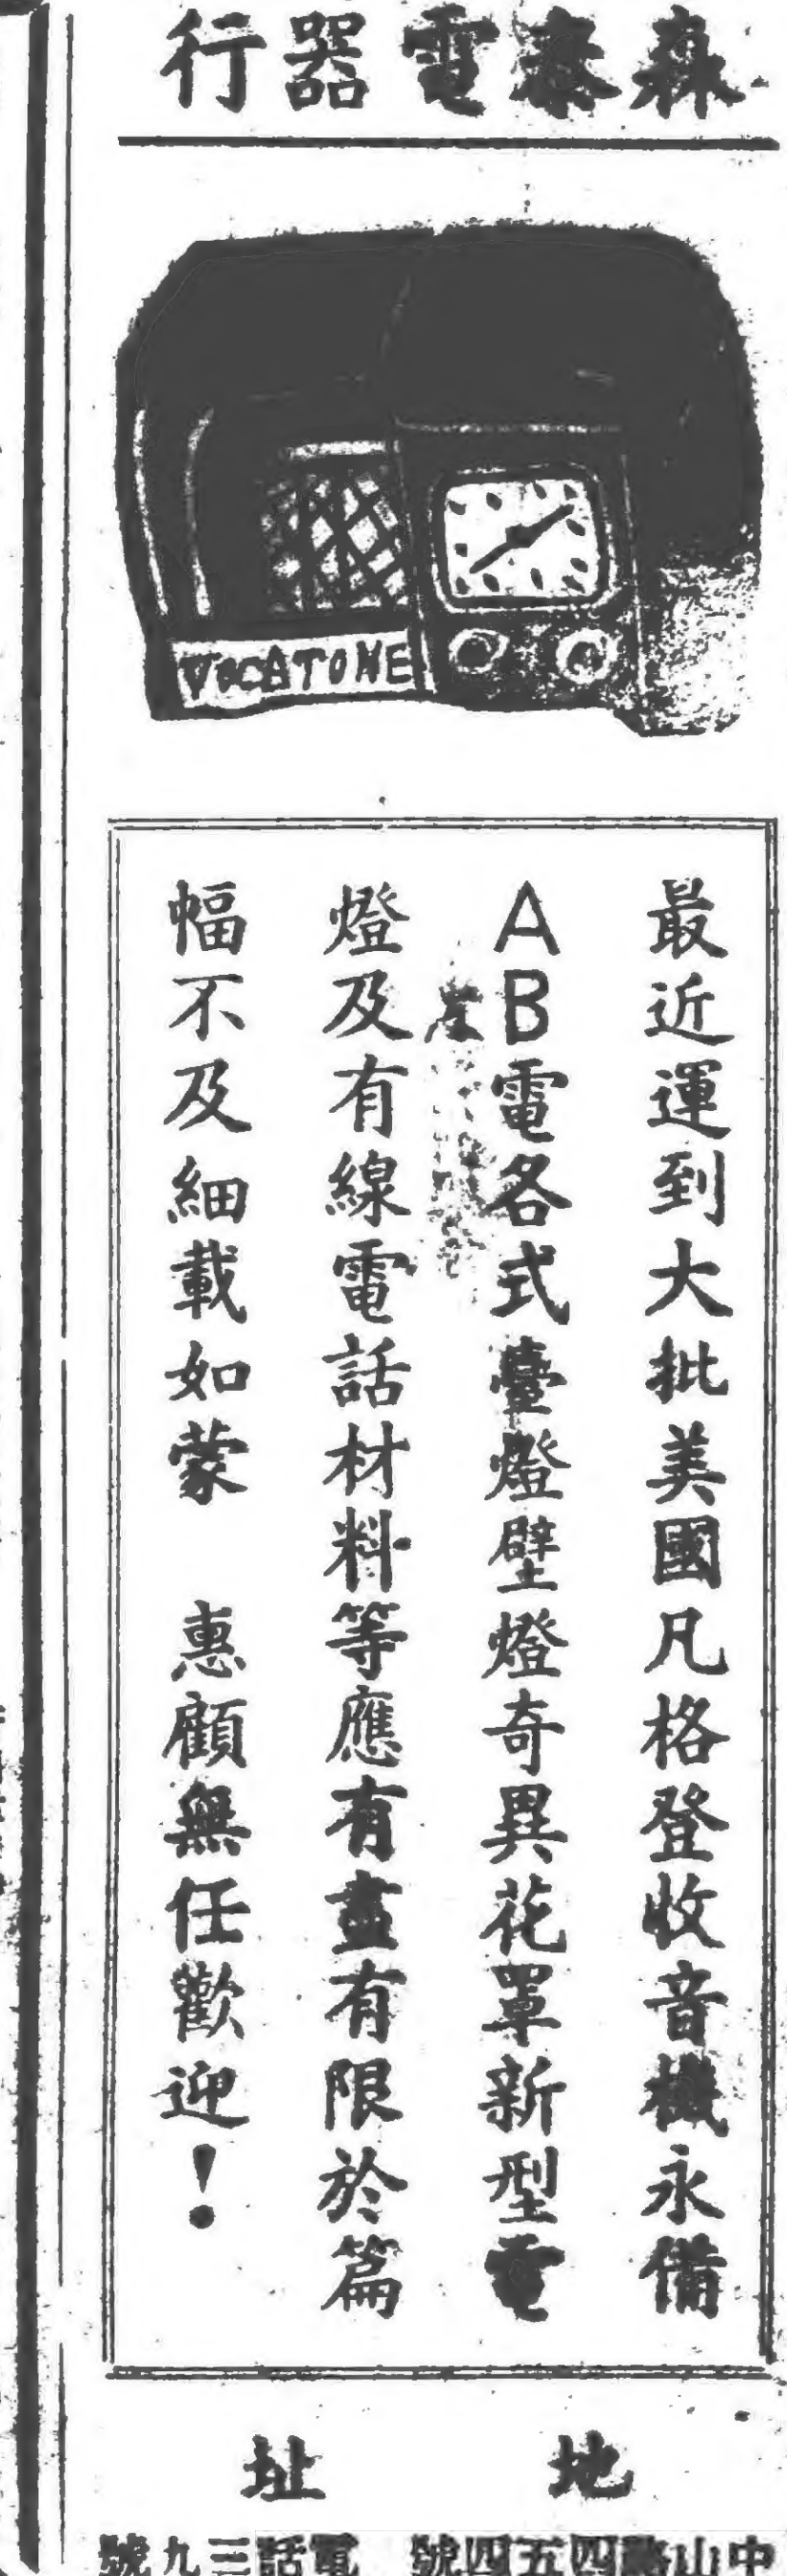 森泰電器行
VOCATONE
最近運到大批美國凡格登收音機永備
AB電各式臺燈壁燈奇異花罩新型電
燈及有線電話材料等應有盡有限於篇
幅不及細載如蒙　惠顧無任歡迎！
地址
中山路四五四號　電話三九號